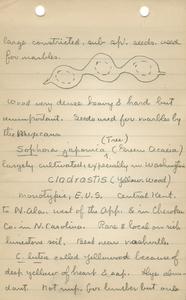 large constricted, sub spi. seeds. used
for marbles.
Wood very dense heavy & hard but
unimportant. Seeds used for marbles by
the Mexicans
(Tree)
Sophora japonica (
largely cultivated, especially in Washington
Cladrastis (Yellow Wood)
Monotypic, E.U.S. Central Kent.
to N. Ala. west of the App. & in Cherokee
Co. in N. Carolina. Rare & local on rich
limestone soil. Best near Nashville.
C. lutea called yellowwood because of
deep yellow of heart & sap.
Not imp. for lumber but only